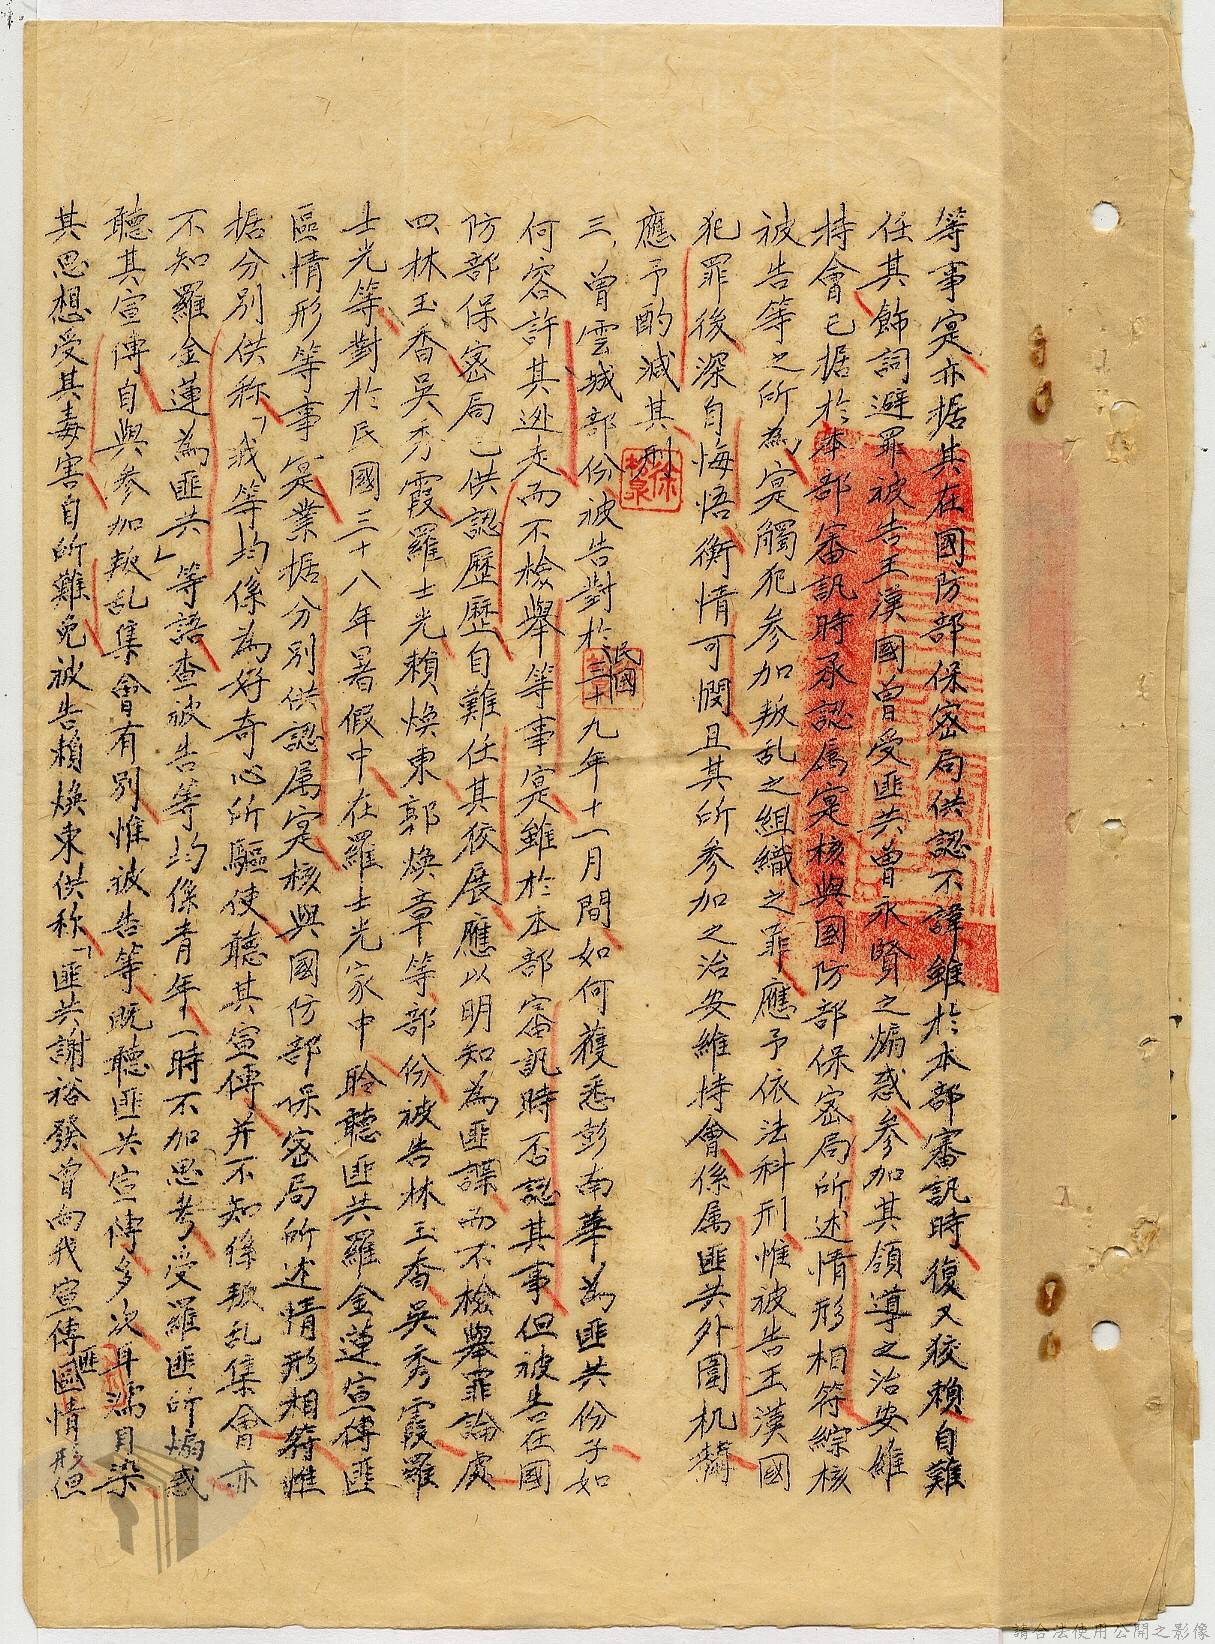 等事寔亦据其在國防部保密局供認不諱雖於本部審訊時復又狡賴自難
任其飾詞避罪被告王漢國曾受匪共曾永賢之煽惑參加其領導之治安維
持會已据於本部審訊時承認属寔核與國防部保密局所述情形相符綜核
被告等之所為寔觸犯參加叛乱之組織之罪應予依法科刑惟被告王漢國
犯罪後深自悔悟衡情可憫且其所參加之治安維持會係属匪共外圍机構
應予酌減其刑
三、曾雲城部份被告對於民國三十九年十一月間如何獲悉彭南華為匪共份子如
何容許其逃走而不檢舉等事寔雖於本部審訊時否認其事但被告在國
防部保密局已供認歷歷自難任其狡展應以明知為匪諜而不檢舉罪論處
四、林玉香吳秀霞羅士光賴煥東郭煥章等部份被告林玉香吳秀霞羅
士光等對於民國三十八年暑假中在羅士光家中聆聽匪共羅金蓮宣傳匪
區情形等事寔業据分別供認属寔核與國防部保密局所述情形相符惟
据分別供称「我等均係為好奇心所驅使聽其宣傳并不知係叛乱集會亦
不知羅金蓮為匪共」等語查被告等均係青年一時不加思考受羅匪所煽惑
聽其宣傳自與參加叛乱集會有別惟被告等既聽匪共宣傳多次耳濡目染
其思想受其毒害自所難免被告賴煥東供称「匪共謝裕發曾向我宣傳匪國情形但
請合法使用公開之影像